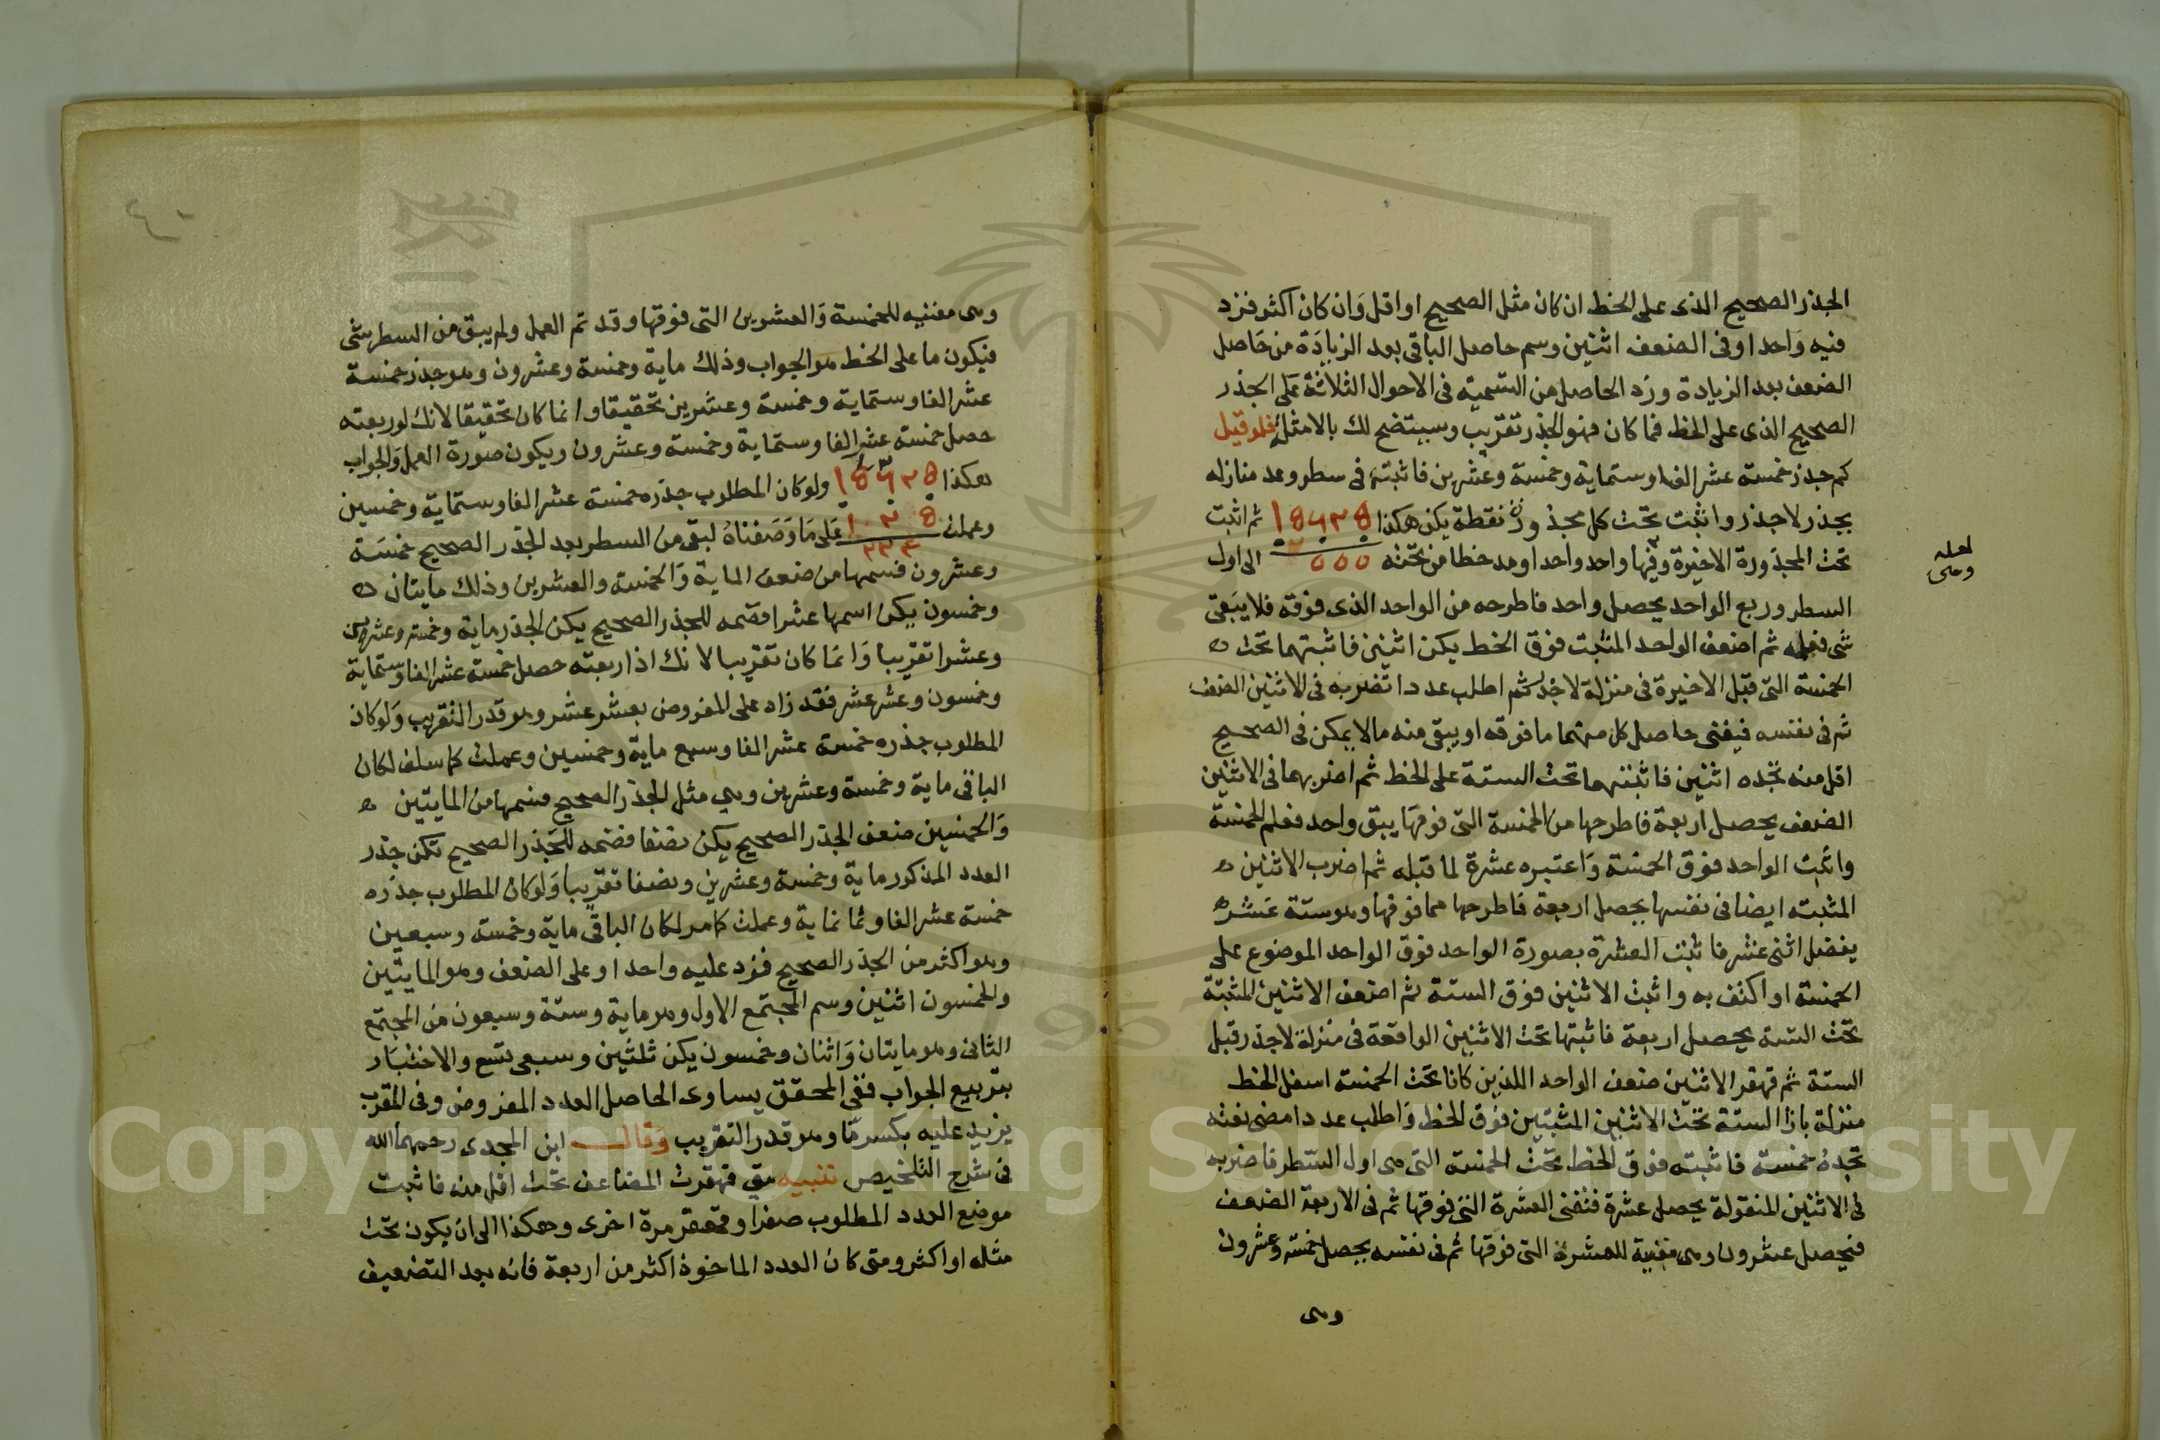 الجذر الصحيح الذى على الخط ان كان مثل الصحيح او اقل وان كان اكثر فزد
فيه واحدا وفى الضعف اثنين وسم حاصل الباقى بعد الزيادة من حاصل
الضعف بعد الزيادة وزد الحاصل من التسمية فى الاحوال الثلاثة على الجذر
الصحيح الذى على الخط فما كان فهو الجذر تقريب وسيتضح لك بالامثلة فلو قيل
كم جذر خمسة عشر الفا وستماية وخمسة وعشرين فاثبته فى سطر وعد منازله
بجذر لا جذر واثبت تحت كل مجذور نقطة يكن هكذا ١٥٦٢٥ ثم اثبت
تحت المجذورة الاخيرة وفيها واحد واحدا ومد خطا من تحته الى اول
لعله
وهى
السطر وربع الواحد يحصل واحد فاطرحه من الواحد الذى فوقه فلا يبقى
شى فعلمه ثم اضعف الواحد المثبت فوق الخط يكن اثنين فاثبتهما تحت
الخمسة التى قبل الاخيرة فى منزلة لا جذر ثم اطلب عددا تضربه فى الاثنين الضعف
ثم فى نفسه فيفنى حاصل كل منهما ما فوقه او يبقى منه ما لا يمكن فى الصحيح
اقل منه تجده اثنين فاثبتهما تحت الستة على الخط ثم اضربهما فى الاثنين
الضعف يحصل اربعة فاطرحها من الخمسة التى فوقها يبق واحد فعلم للخمسة
واثبت الواحد فوق الخمسة واعتبره عشرة لما قبله ثم اضرب الاثنين
المثبته ايضا فى نفسها يحصل اربعة فاطرحها مما فوقها وهو ستة عشر
يفضل اثنى عشر فاثبت العشرة بصورة الواحد فوق الواحد الموضوع على
الخمسة او اكتف به واثبت الاثنين فوق الستة ثم اضعف الاثنين المثبتة
تحت الستة يحصل اربعة فاثبتها تحت الاثنين الواقعة فى منزلة لا جذر قبل
الستة ثم قهقر الاثنين ضعف الواحد اللذين كانا تحت الخمسة اسفل الخط
منزلة بازا الستة تحت الاثنين المثبتين فوق الخط واطلب عددا مضى نعته
تجده خمسة فاثبته فوق الخط تحت الخمسة التى هى اول السطر فاضربه
فى الاثنين المنقولة يحصل عشرة فتفنى العشرة التى فوقها ثم فى الاربعة الضعف
فيحصل عشرون وهى مفنية للعشرة التى فوقها ثم فى نفسه يحصل خمسة وعشرون
وهى
وهى مفنيه للخمسة والعشرين التى فوقها وقد تم العمل ولم يبق من السطر شى
فيكون ما على الخط هو الجواب وذلك ماية وخمسة وعشرون وهو جذر خمسة
عشر الفا وستماية وخمسة وعشرين تحقيقا وانما كان تحقيقا لانك لو ربعته
حصل خمسة عشر الفا وستماية وخمسة وعشرون ويكون صورة العمل والجواب
هكذا ١٥٦٢٥ ولو كان المطلوب جذره خمسة عشر الفا وستماية وخمسين
وعملت ١٢٥ على ما وصفناه لبقى من السطر بعد الجذر الصحيح خمسة
وعشرون فسمها من ضعف الماية والخمسة والعشرين وذلك مايتان
وخمسون يكن اسمها عشرا فضمه للجذر الصحيح يكن الجذر ماية وخمسة وعشرين
وعشرا تقريبا وانما كان تقريبا لانك اذا ربعته حصل خمسة عشر الفا وستماية
وخمسون وعشر عشر فقد زاد على المفروض بعشر عشر وهو قدر التقريب ولو كان
المطلوب جذره خمسة عشر الفا وسبع ماية وخمسين وعملت كما سلف لكان
الباقى ماية وخمسة وعشرين وهى مثل الجذر الصحيح فسمها من المايتين
والخمسين ضعف الجذر الصحيح يكن نصفا فضمه للجذر الصحيح تكن جذر
العدد المذكور ماية وخمسة وعشرين ونصفا تقريبا ولو كان المطلوب جذره
خمسة عشر الفا وثمانماية وعملت كما مر لكان الباقى ماية وخمسة وسبعين
وهو اكثر من الجذر الصحيح فزد عليه واحدا وعلى الضعف وهو المايتين
والخمسون اثنين وسم المجتمع الاول وهو ماية وستة وسبعون من المجتمع
الثانى وهو مايتان واثنان وخمسون يكن ثلثين وسبعى تسع والاختبار
بتربيع الجواب ففى المحقق يساوى الحاصل العدد المفروض وفى المقرب
يزيد عليه بكسر ما وهو قدر التقريب وقال ابن المجدى رحمهما الله
فى شرح التلخيص تنبيه متى قهقرت المضاعف تحت اقل منه فاثبت
موضع العدد المطلوب صفرا وقهقر مرة اخرى وهكذا الى ان يكون تحت
مثله او اكثر ومتى كان العدد الماخوذ اكثر من اربعة فانه بعد التضعيف
Copyright © King Saud University